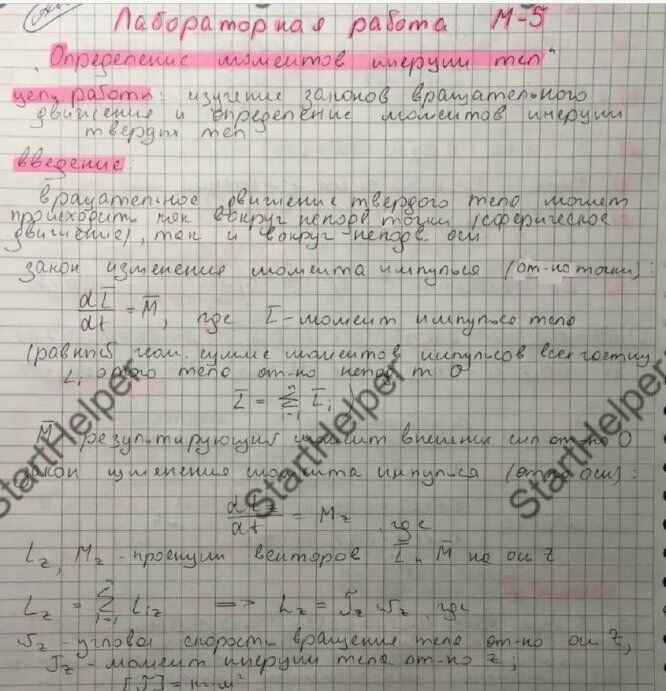 Лабораторная работа М-5
"Определение моментов инерции тел"
цель работы: изучение законов вращательного
движения и определение моментов инерции
твердых тел
введение:
вращательное движение твердого тела может
происходить как вокруг неподв точки (сферическое
движение), так и вокруг неподв. оси
закон изменения момента импульса (от-но точки):
dL̄/dt = M̄, где L̄ - момент импульса тела
(равный геом. сумме моментов импульсов всех частиц
Li этого тела от-но неподв т О
L̄ = Σ L̄i (i=1, n)
M̄ результирующий момент внешних сил от-но О
закон изменения момента импульса (от-но оси):
dLz/dt = Mz, где
Lz, Mz - проекции векторов L̄ и M̄ на ось z
Lz = Σ Liz (i=1, n) => Lz = Jz ωz, где
ωz - угловая скорость вращения тела от-но оси z,
Jz - момент инерции тела от-но z;
[J] = кг·м²
StartHelper
StartHelper
StartHelper